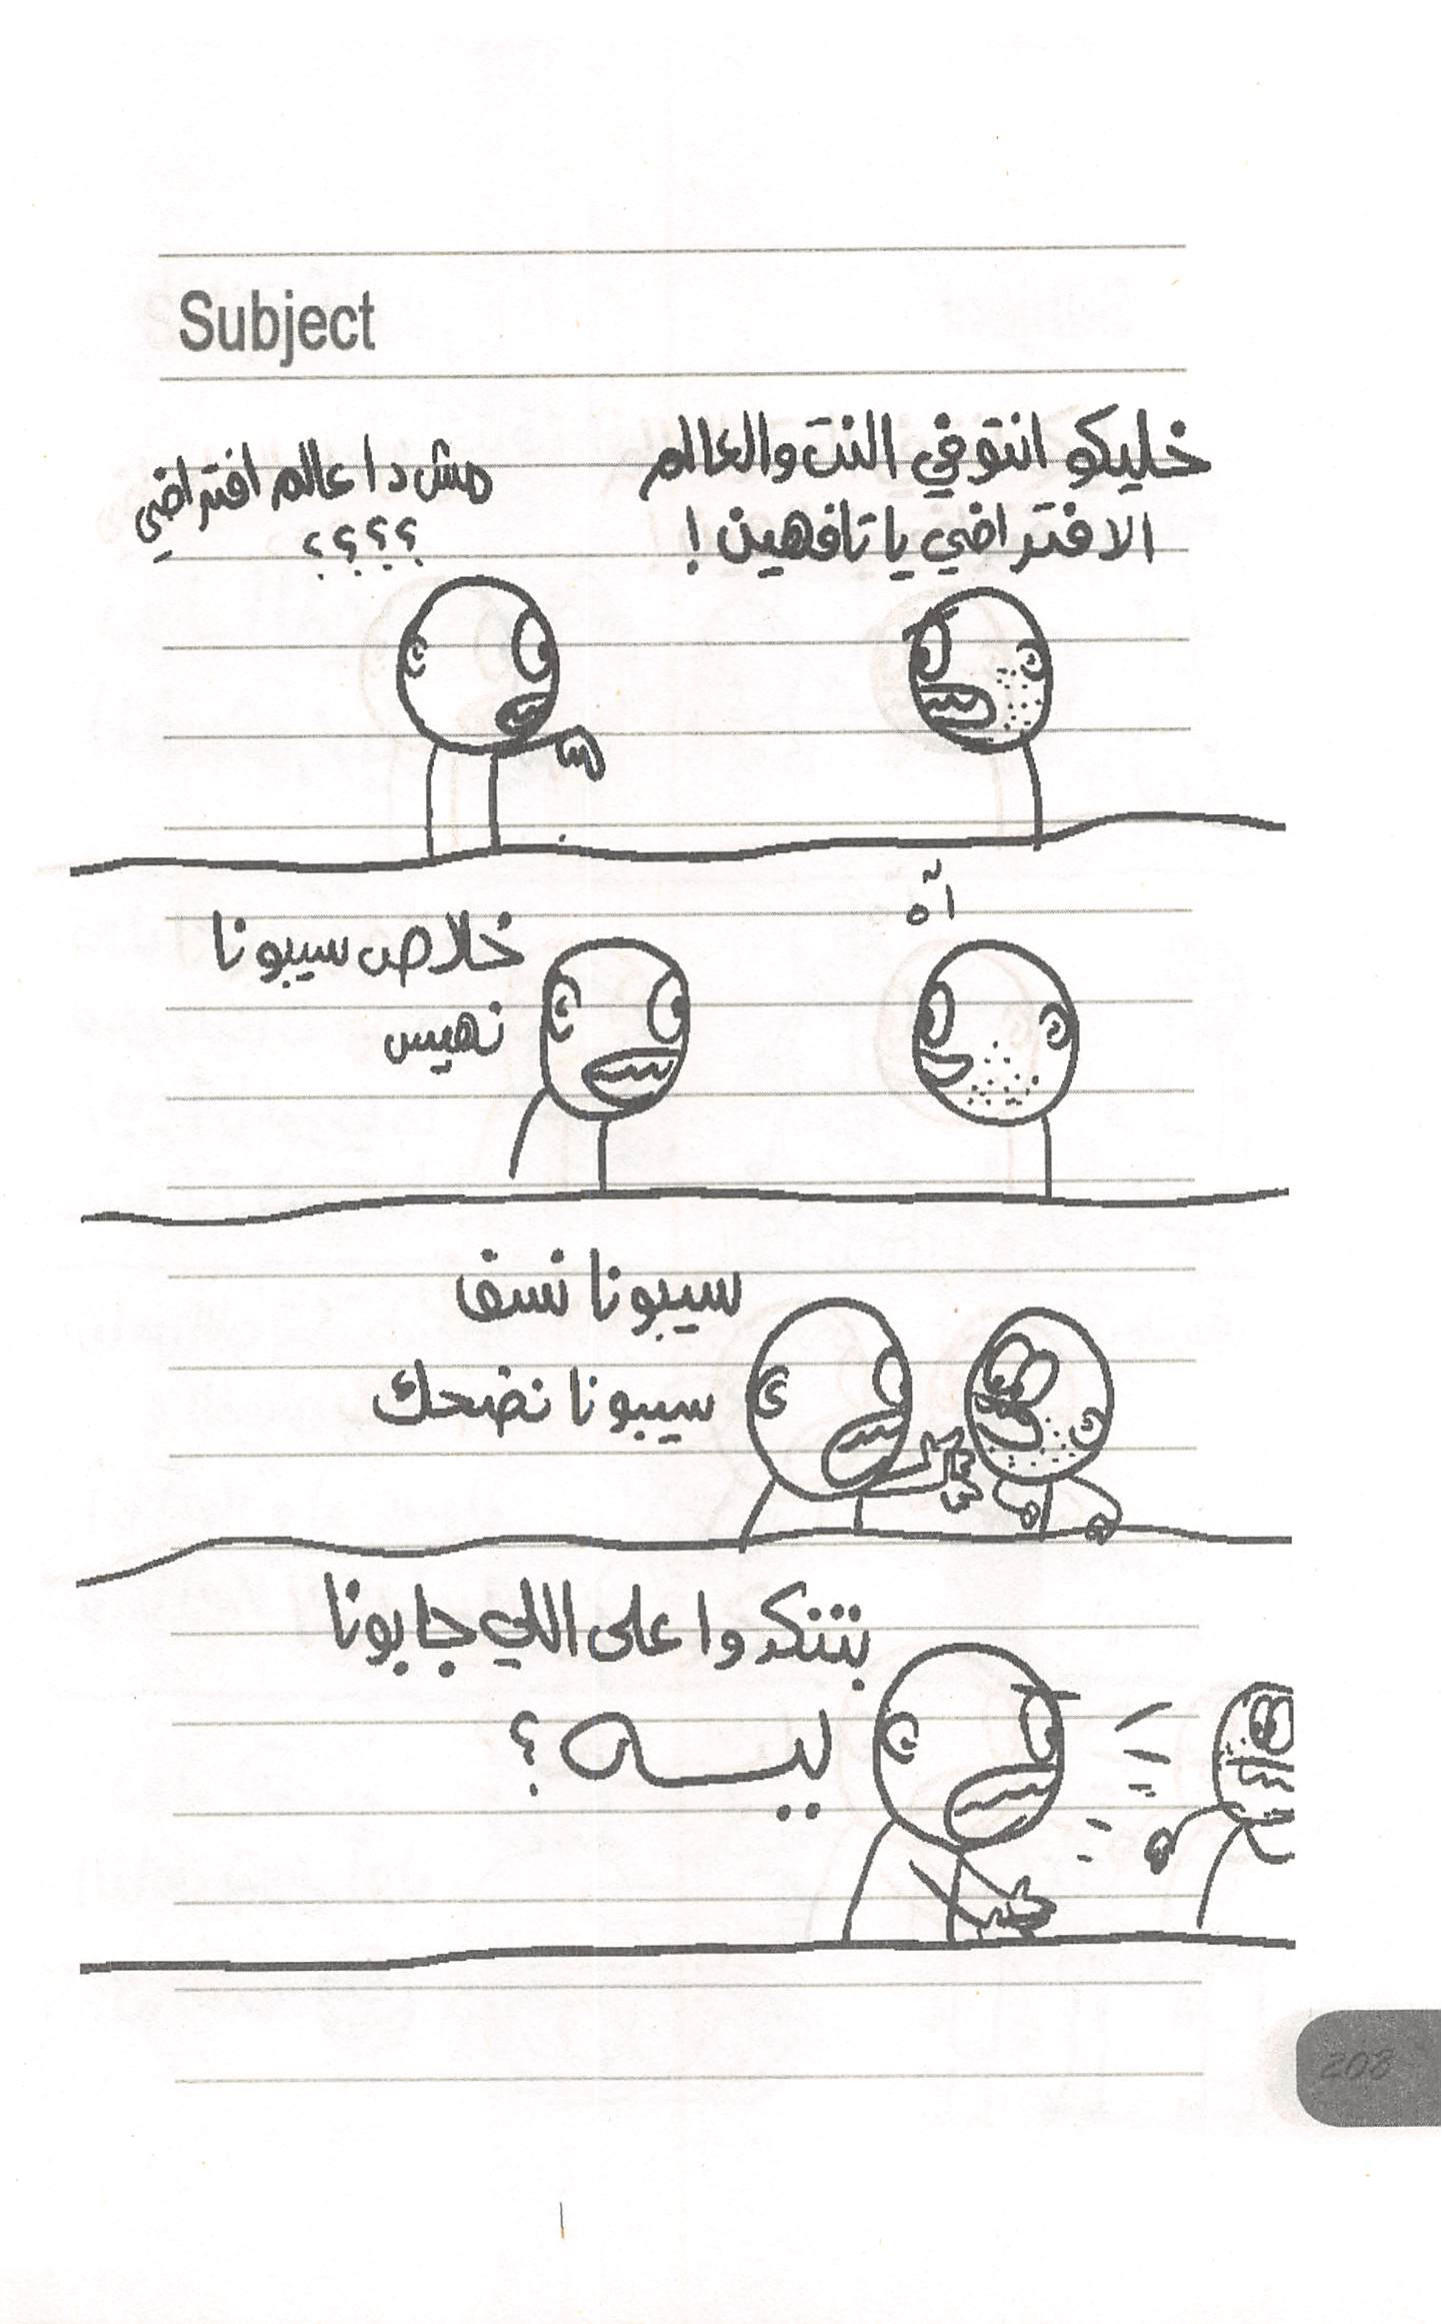 Subject
خليكو انتو في النت والعالم
الافتراضي يا تافهين !
مش دا عالم افتراضي
؟؟؟؟
آه
خلاص سيبونا
نهيس
سيبونا نسف
سيبونا نضحك
بتنكدوا على اللي جابونا
ليـــه ؟
208